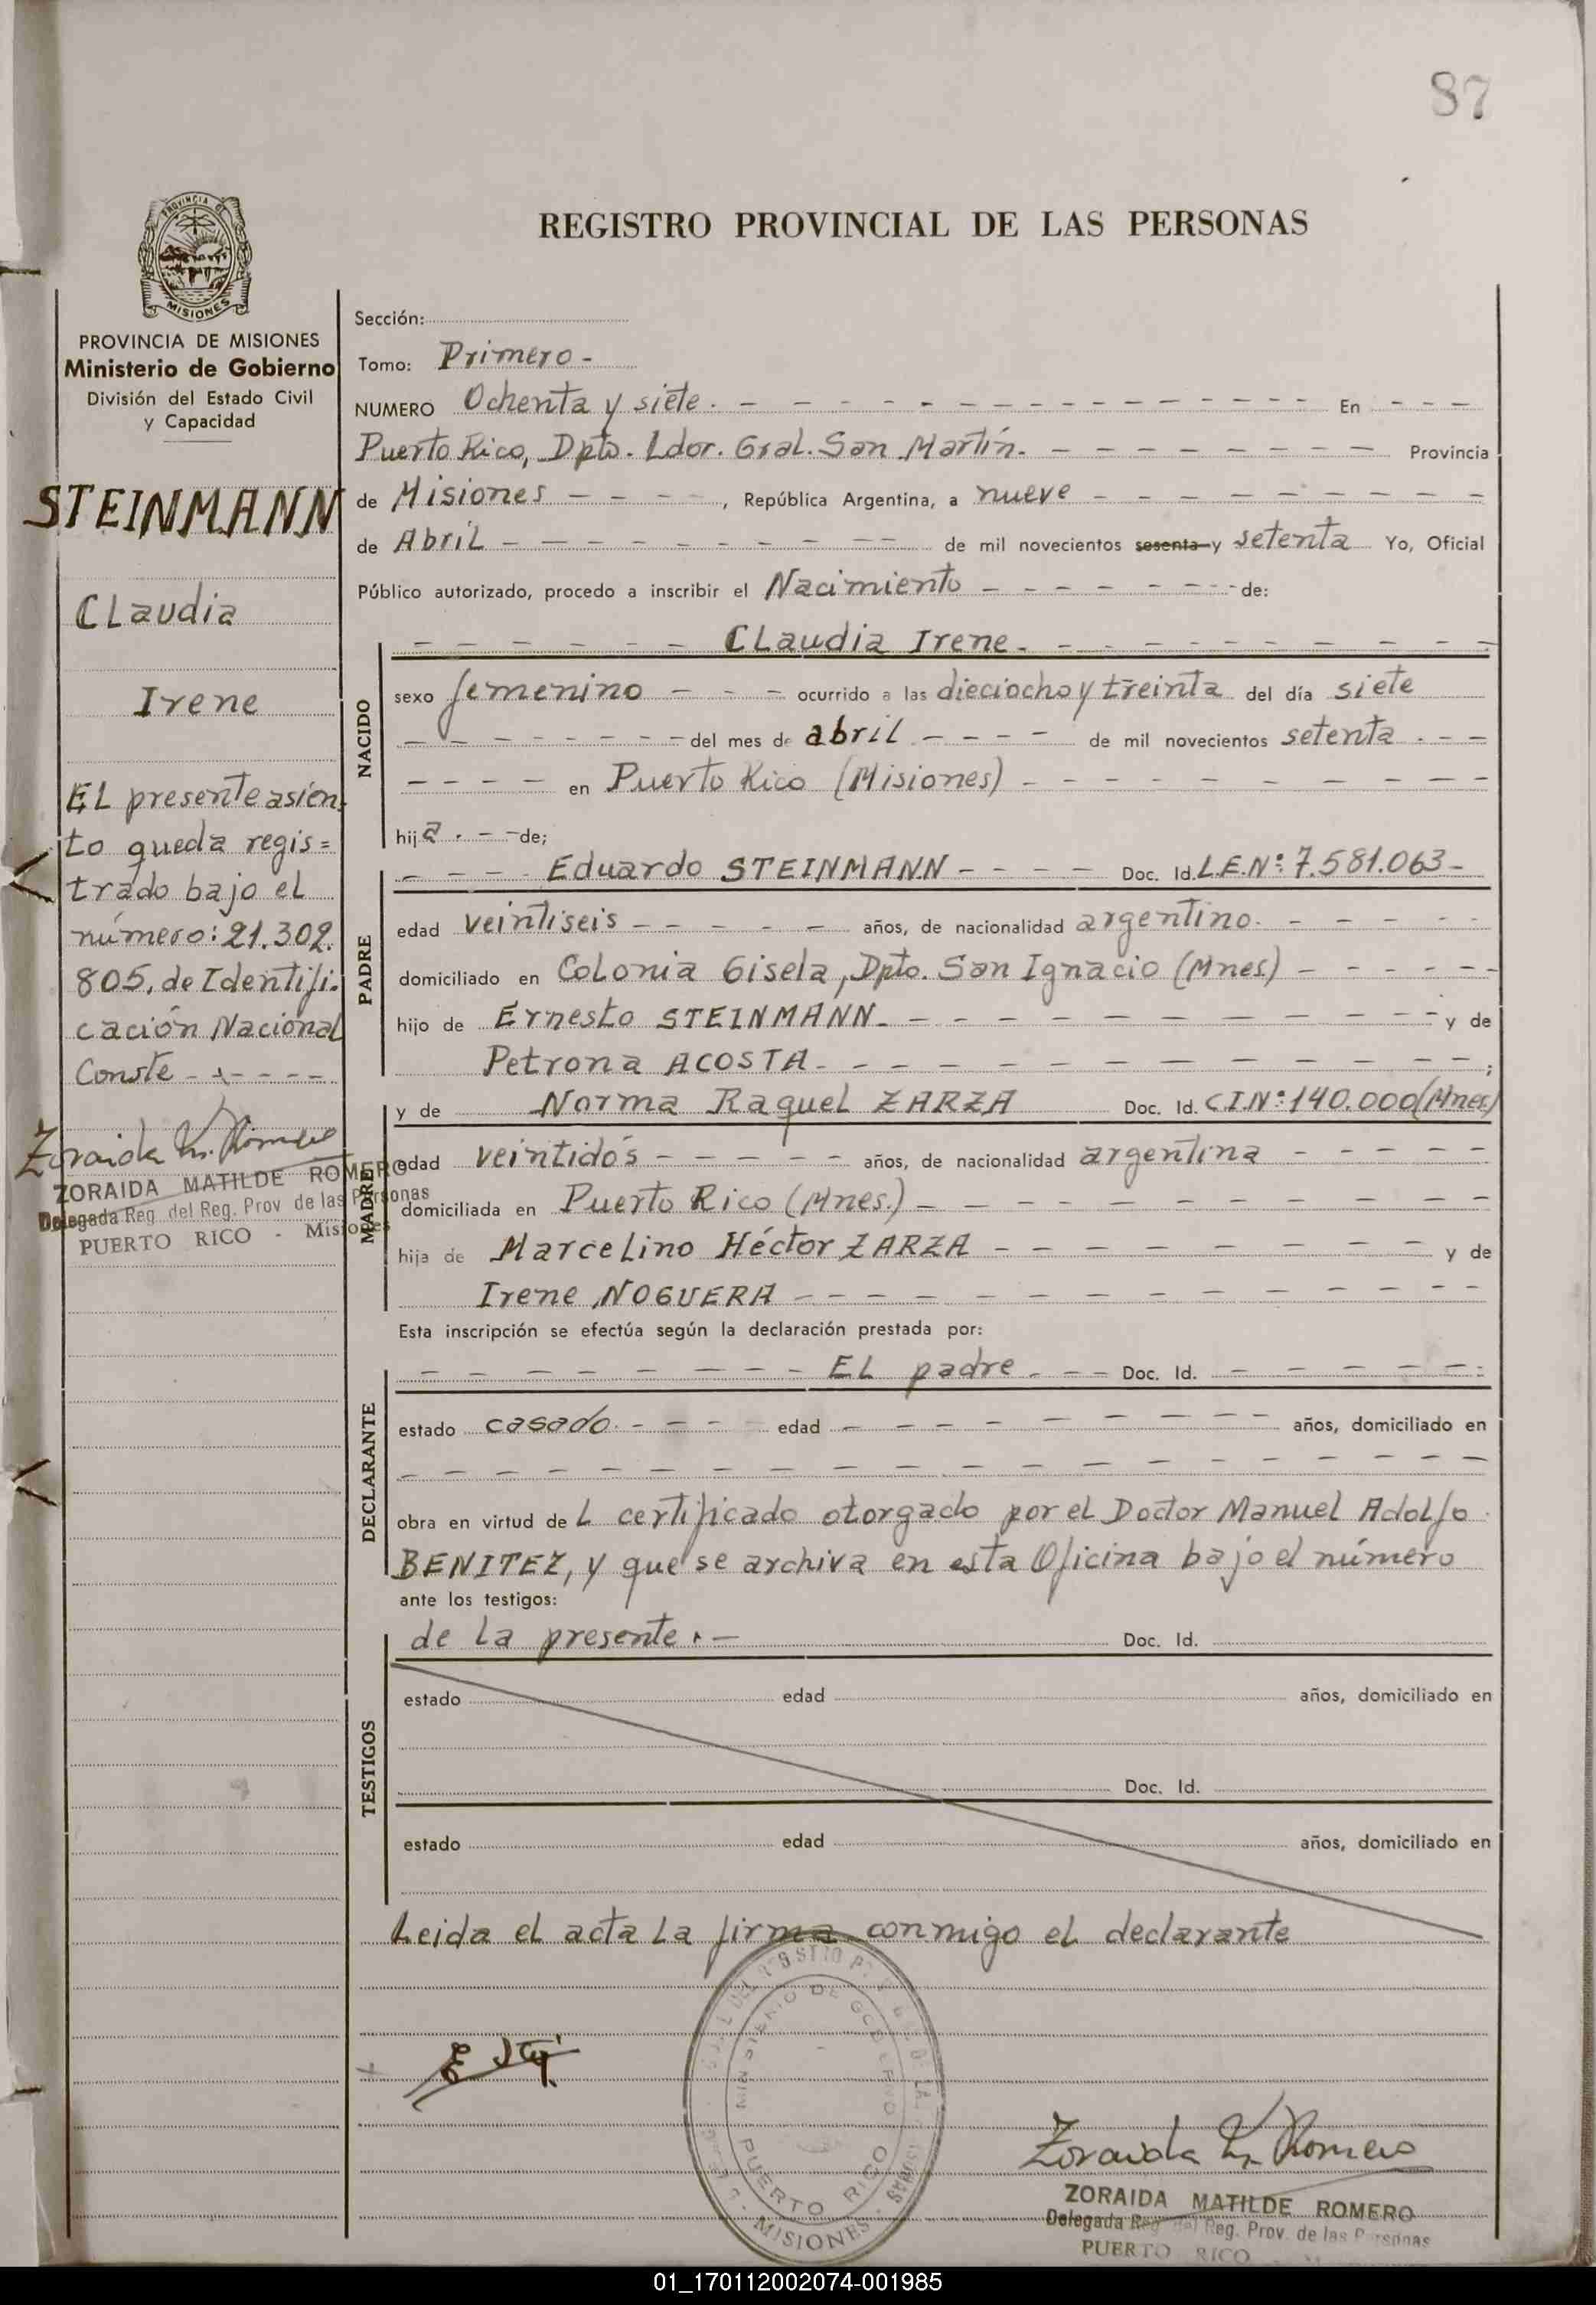 87
REGISTRO PROVINCIAL DE LAS PERSONAS
PROVINCIA DE MISIONES
Ministerio de Gobierno
División del Estado Civil
y Capacidad
STEINMANN
Claudia
Irene
El presente asien=
to queda regis=
trado bajo el
número: 21.302.
805, de Identifi-
cación Nacional
Conste
Zoraida M. Romero
ZORAIDA MATILDE ROMERO
Delegada Reg. del Reg. Prov de las Personas
PUERTO RICO - Misiones
Sección:
Tomo: Primero -
NUMERO Ochenta y siete. - En
Puerto Rico, Dpto. Ldor. Gral. San Martín. - Provincia
de Misiones - , República Argentina, a nueve -
de Abril - de mil novecientos sesenta y setenta Yo, Oficial
Público autorizado, procedo a inscribir el Nacimiento - de:
Claudia Irene. -
NACIDO
sexo femenino - ocurrido a las dieciocho y treinta del día siete
- del mes de abril - de mil novecientos setenta . -
- en Puerto Rico (Misiones) -
hija . - de;
PADRE
Eduardo STEINMANN - Doc. Id. L.E.Nº: 7.581.063 -
edad veintiseis - años, de nacionalidad argentino. -
domiciliado en Colonia Gisela, Dpto. San Ignacio (Mnes.) -
hijo de Ernesto STEINMANN. - y de
Petrona ACOSTA. - ;
MADRE
y de Norma Raquel ZARZA Doc. Id. C.I.Nº: 140.000 (Mnes.)
edad veintidós - años, de nacionalidad argentina -
domiciliada en Puerto Rico (Mnes.) -
hija de Marcelino Héctor ZARZA - y de
Irene NOGUERA -
Esta inscripción se efectúa según la declaración prestada por:
DECLARANTE
El padre. - Doc. Id. -
estado casado. - edad - años, domiciliado en
obra en virtud de l certificado otorgado por el Doctor Manuel Adolfo
BENITEZ, y que se archiva en esta Oficina bajo el número
ante los testigos:
de la presente. - Doc. Id.
TESTIGOS
estado edad años, domiciliado en
Doc. Id.
estado edad años, domiciliado en
Leida el acta la firma conmigo el declarante
MINISTERIO DE GOBIERNO
PUERTO RICO
MISIONES
Zoraida M. Romero
ZORAIDA MATILDE ROMERO
Delegada Reg. del Reg. Prov. de las Personas
PUERTO RICO
01_170112002074-001985